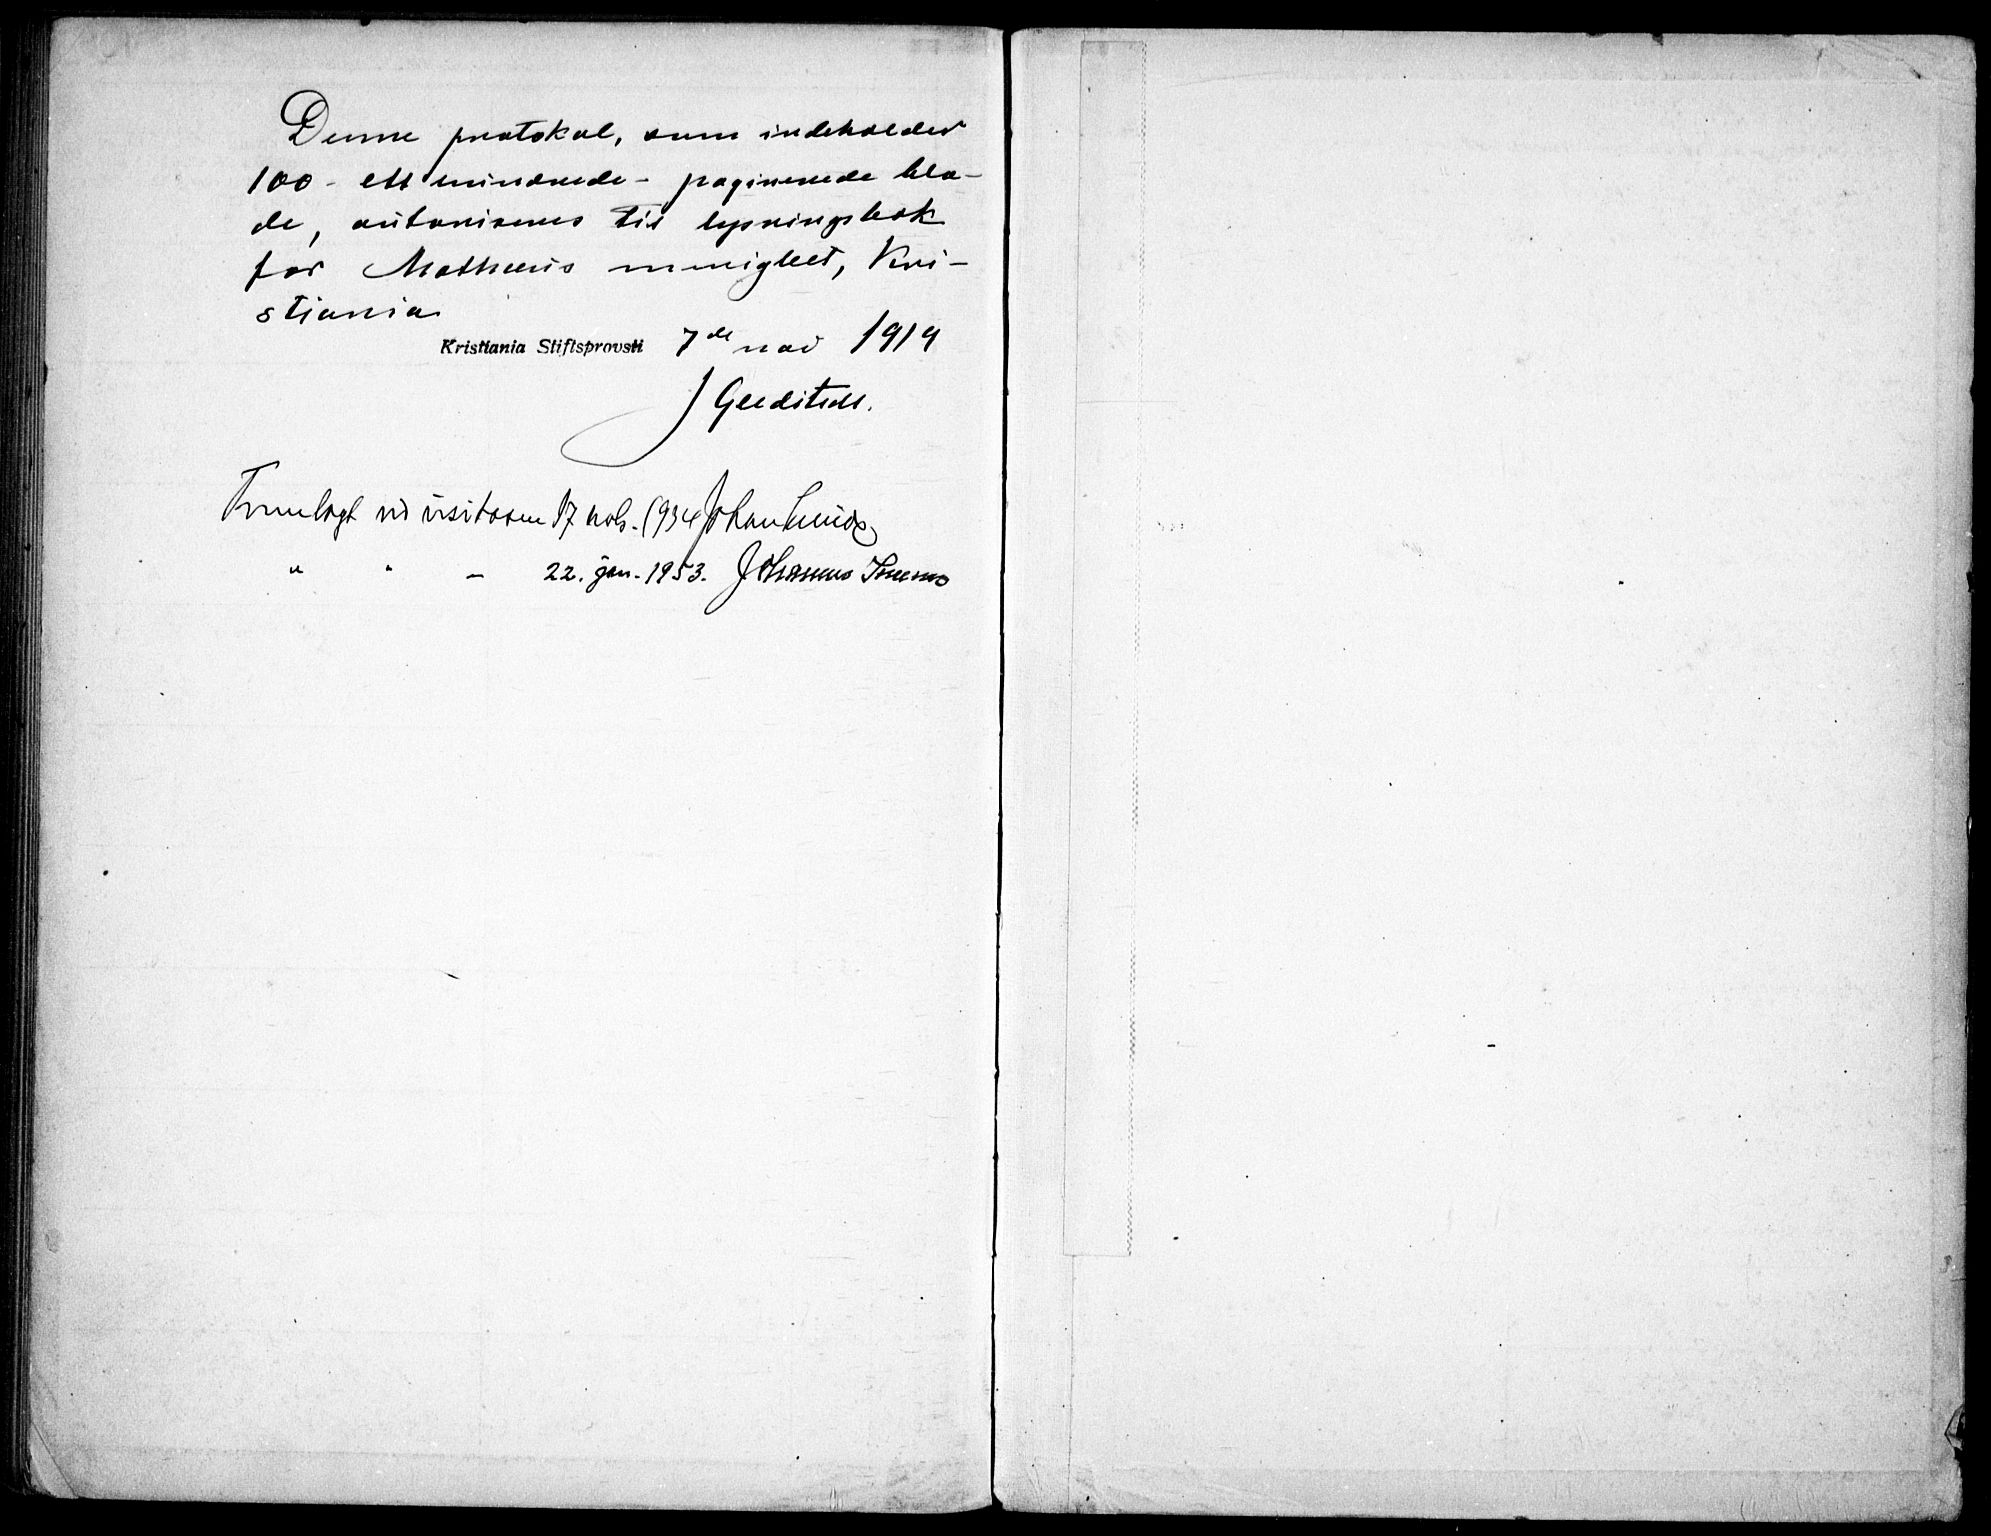 Denne protokol, som indeholder
100 - ett hundrede - paginerede bla-
de, autoriseres til lysningsbok
for Matheus menighet, Kri-
stiania
Kristiania Stiftsprovsti 7de nov 1919
J Gleditsch.
Fremlagt ved visitasen 17 nov. 1934 Johan Lunde
" " - 22. jan. 1953. Johannes Smemo